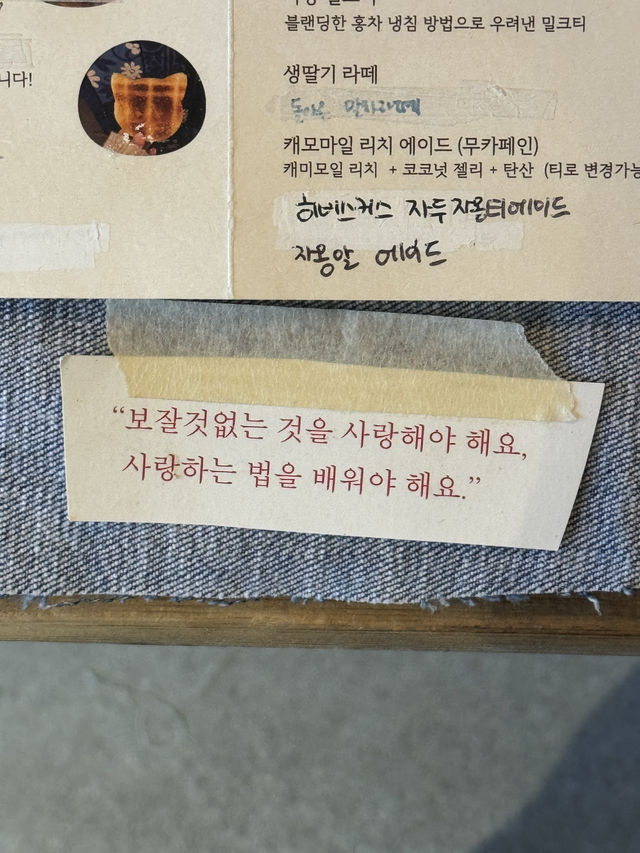 니다!
블랜딩한 홍차 냉침 방법으로 우려낸 밀크티
생딸기 라떼
말차라떼
캐모마일 리치 에이드 (무카페인)
캐미모일 리치 + 코코넛 젤리 + 탄산 (티로 변경가능
히비스커스 자두자몽티에이드
자몽알 에이드
“보잘것없는 것을 사랑해야 해요,
사랑하는 법을 배워야 해요.”